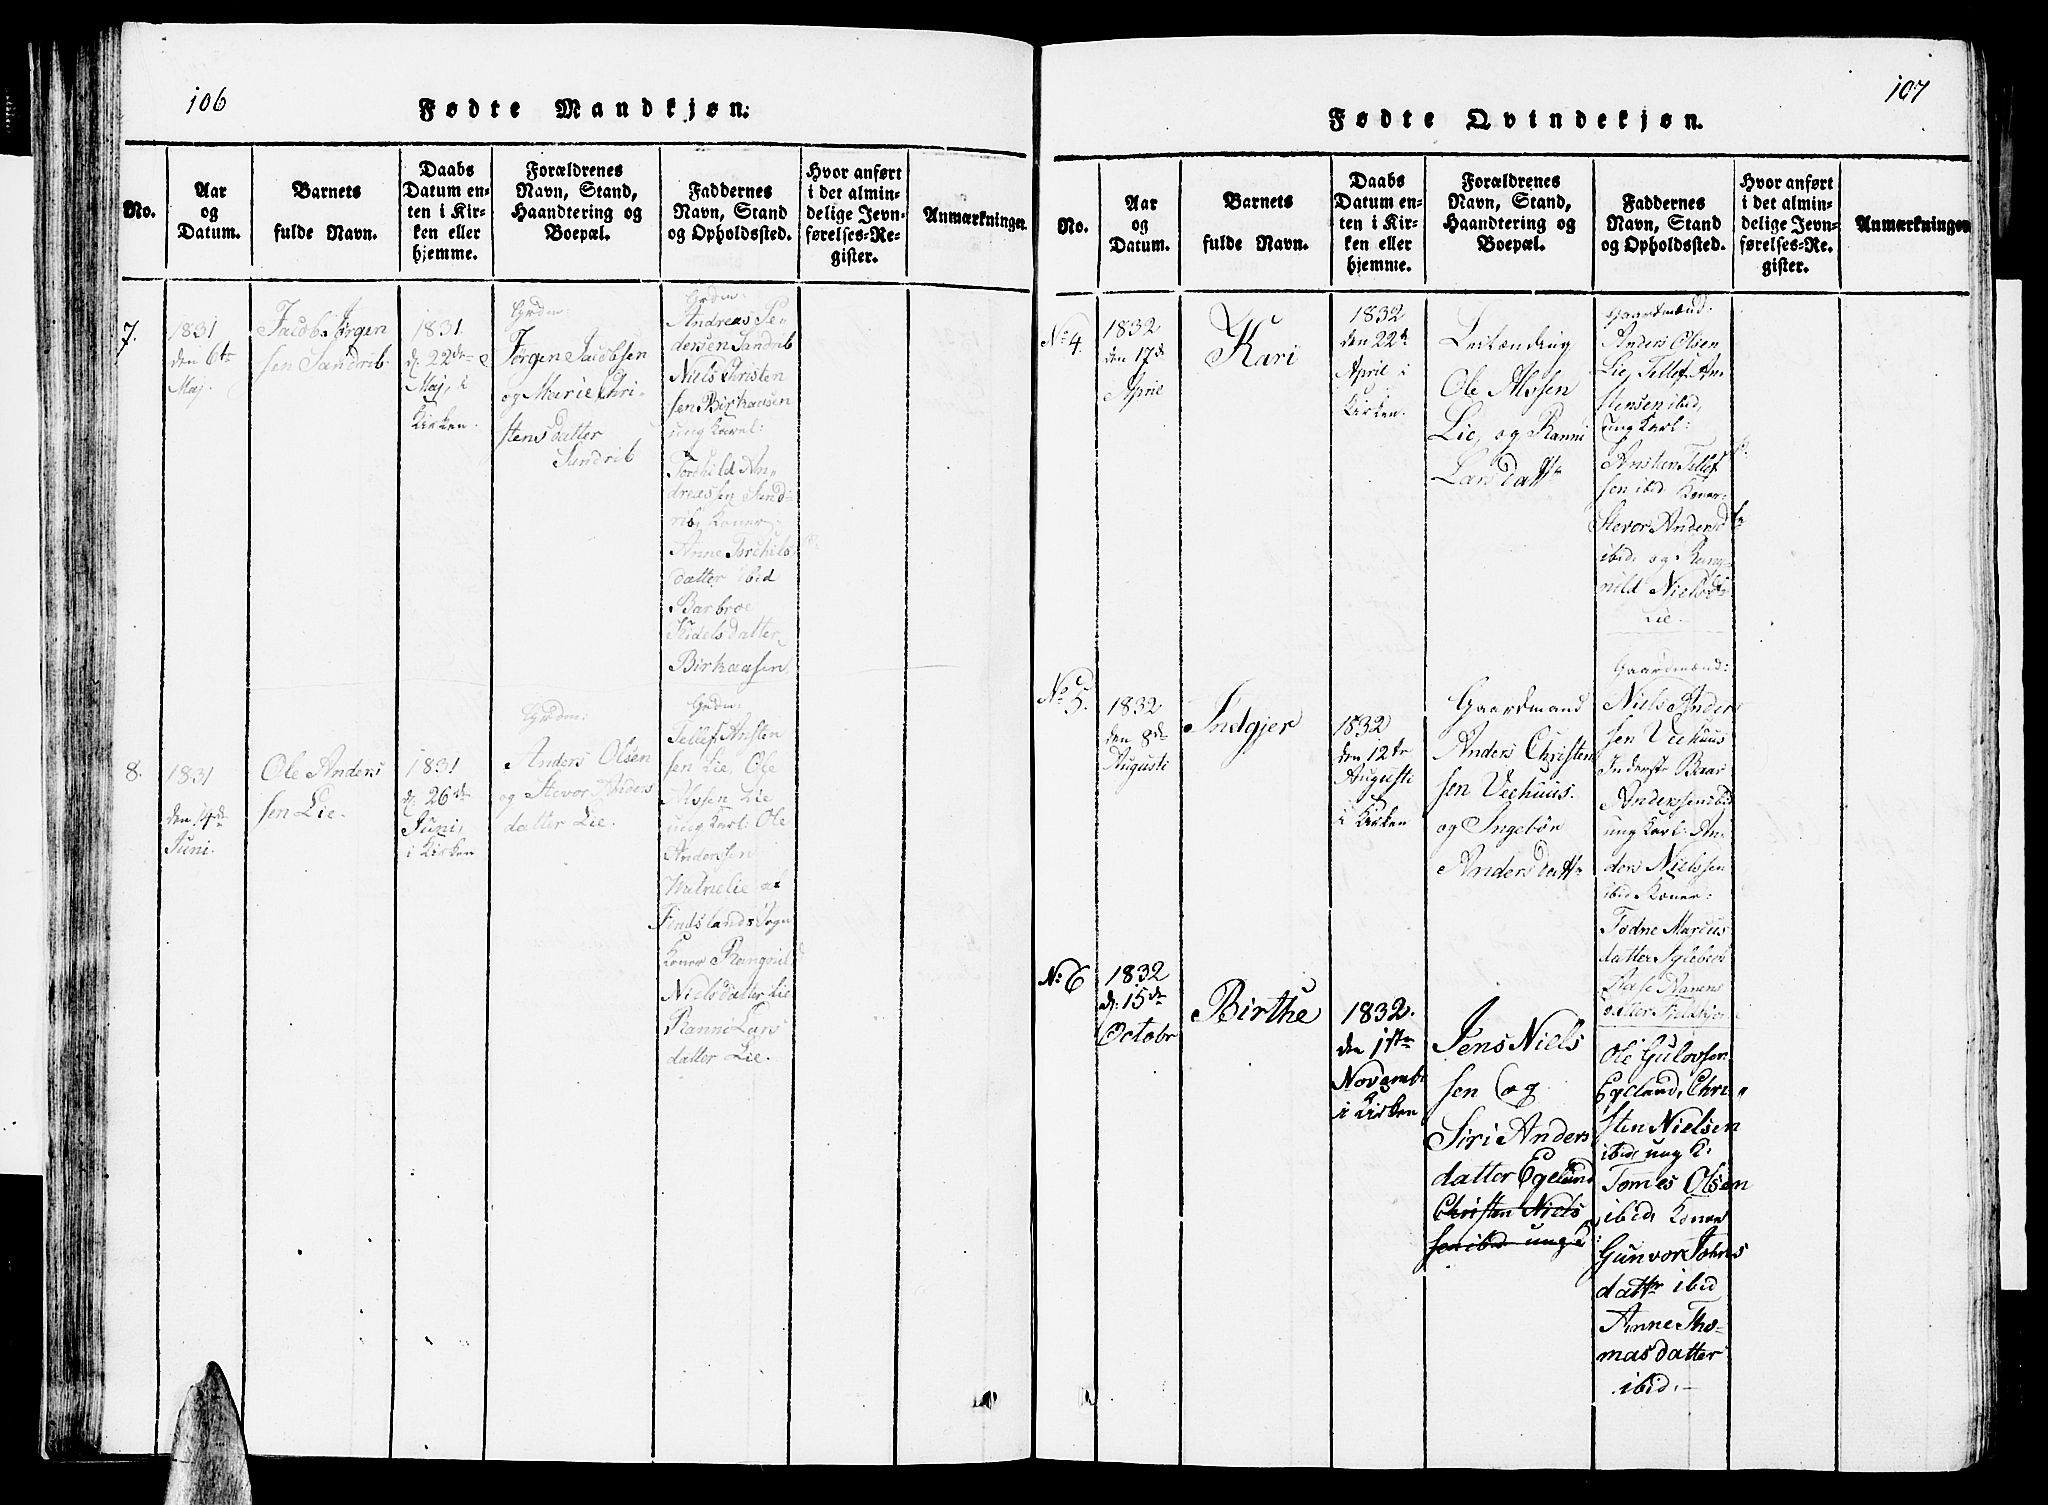 106
Fødte Mandkjøn:
No.
Aar
og
Datum.
Barnets
fulde Navn.
Daabs
Datum en-
ten i Kir-
ken eller
hjemme.
Forældrenes
Navn, Stand,
Haandtering og
Boepæl.
Faddernes
Navn, Stand
og Opholdssted.
Hvor anført
i det almin-
delige Jevn-
førelses-Re-
gister.
Anmærkninger.
7.
1831
den 6te
Maj.
Jacob Jørgen
sen Sandrib
1831.
d: 22de
Maj, i
Kirken.
Grdm:
Jørgen Jacobsen
og Marie Chri-
stensdatter
Sandrib
Grdm:
Andreas Pe-
dersen Sandrib
Niels Christen
sen Birkaasen
ung Karl:
Torchild An-
dreassen Sand-
rib, Koner:
Anne Torchils
datter ibid
Barbroe
Keidelsdatter
Birkaasen
8.
1831
den 14de
Juni.
Ole Anders
sen Lie.
1831
d: 26de
Juni,
i Kirken
Grdm:
Anders Olsen
og Stevor Anders
datter Lie.
Grdm:
Tellef Ansten
sen Lie, Ole
Alssen Lie
ung Karl: Ole
Anderssen
Watnelie at
Findslands Sogn
Koner Rangnild
Nielsdatter Lie
Ranni Lars
datter Lie.
107
Fødte Qvindekjøn.
No.
Aar
og
Datum.
Barnets
fulde Navn.
Daabs
Datum en-
ten i Kir-
ken eller
hjemme.
Forældrenes
Navn, Stand,
Haandtering og
Boepæl.
Faddernes
Navn, Stand
og Opholdssted.
Hvor anført
i det almin-
delige Jevn-
førelses-Re-
gister.
Anmærkninger
No 4.
1832
den 17de
April
Kari
1832
den 22de
April i
Kirken.
Leilænding
Ole Alssen
Lie, og Ranni
Larsdattr
Gaardmænd:
Anders Olsen
Lie, Tellef An
stensen ibid,
ung Karl:
Ansten Tellef
sen ibid Koner:
Stevor Andersd
ibid. og Rang-
nild Nielsd
Lie.
No 5.
1832
den 8de
Augusti
Indgjer
1832
den 12te
Augusti
i Kirken
Gaardmand
Anders Christen
sen Veehuus.
og Ingebor
Andersdattr
Gaardmænd:
Niels Anders
sen Veehuus
Anderssen ibid
ung Karl: An-
ders Nielssen
ibid Koner:
Todne Marcus
datter
datter
No 6
1832
d: 15de
Octobr
Birthe
1832.
den 1ste
Novemb
i Kirken
Jens Niels
sen og
Siri Anders
datter Egeland
Christen Niels
sen ibid ung K
Ole Gulovsen
Egeland, Chri
sten Nielsen
ibid, ung K:
Tomes Olsen
ibid Koner
Gunvor Johns
dattr ibid
Anne Tho-
mas datter
ibid.